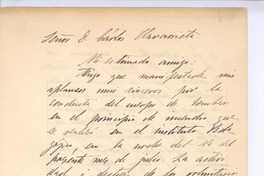 Señor D. Carlos Olavarrieta
Mi estimado amigo:
Tengo que manifestarle mi
aplauso mui sincero por la
conducta del cuerpo de bombero
en el principio de incendio que
se realizó en el instituto Peda-
gójico, en la noche del 14 del
presente mes de julio. La activi-
dad i